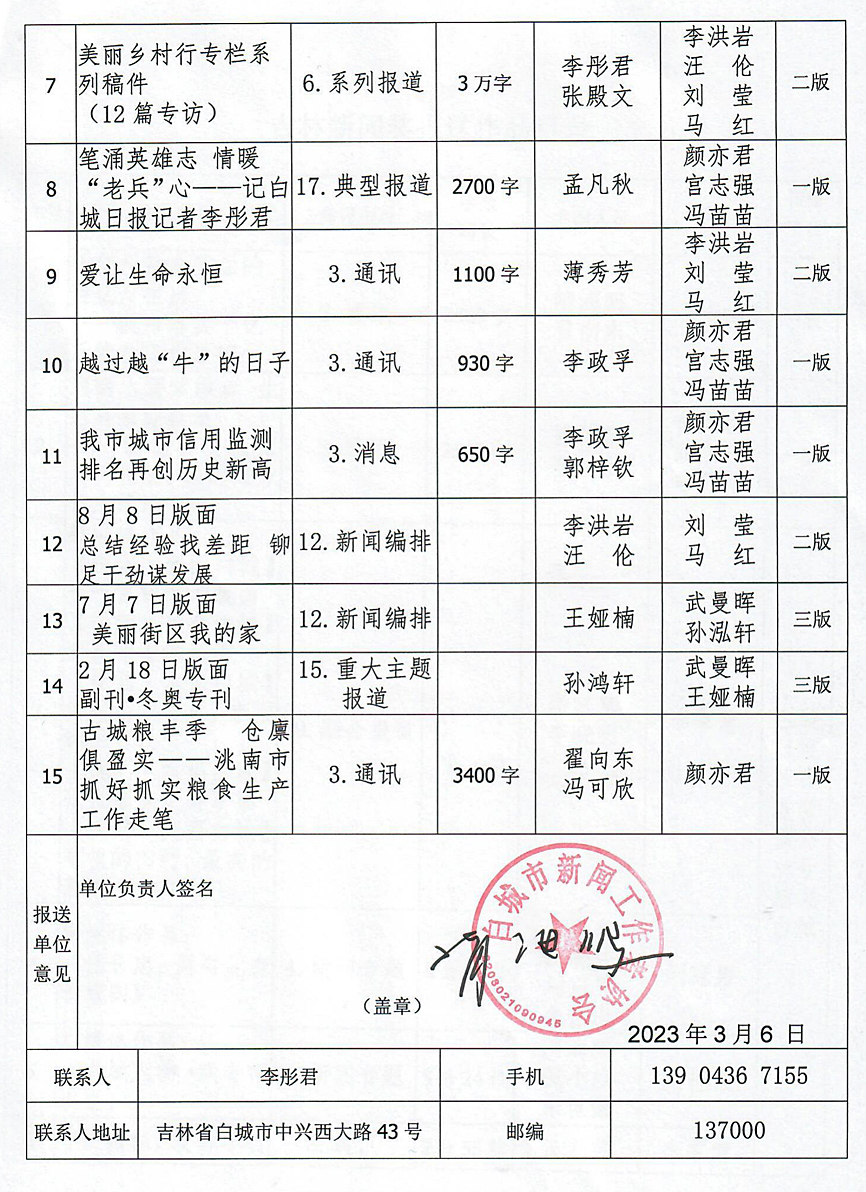 7
美丽乡村行专栏系
列稿件
（12篇专访）
6.系列报道
3万字
李彤君
张殿文
李洪岩
汪 伦
刘 莹
马 红
二版
8
笔涌英雄志 情暖
“老兵”心——记白
城日报记者李彤君
17.典型报道
2700字
孟凡秋
颜亦君
官志强
冯苗苗
一版
9
爱让生命永恒
3.通讯
1100字
薄秀芳
李洪岩
刘 莹
马 红
二版
10
越过越“牛”的日子
3.通讯
930字
李政孚
颜亦君
官志强
冯苗苗
一版
11
我市城市信用监测
排名再创历史新高
3.消息
650字
李政孚
郭梓钦
颜亦君
官志强
冯苗苗
一版
12
8月8日版面
总结经验找差距 铆
足干劲谋发展
12.新闻编排
李洪岩
汪 伦
刘 莹
马 红
二版
13
7月7日版面
美丽街区我的家
12.新闻编排
王娅楠
武曼晖
孙泓轩
三版
14
2月18日版面
副刊•冬奥专刊
15.重大主题
报道
孙鸿轩
武曼晖
王娅楠
三版
15
古城粮丰季 仓廪
俱盈实——洮南市
抓好抓实粮食生产
工作走笔
3.通讯
3400字
翟向东
冯可欣
颜亦君
一版
报送
单位
意见
单位负责人签名
白城市新闻工作者协会
2208021090945
（盖章）
2023年3月6日
联系人
李彤君
手机
139 0436 7155
联系人地址
吉林省白城市中兴西大路43号
邮编
137000